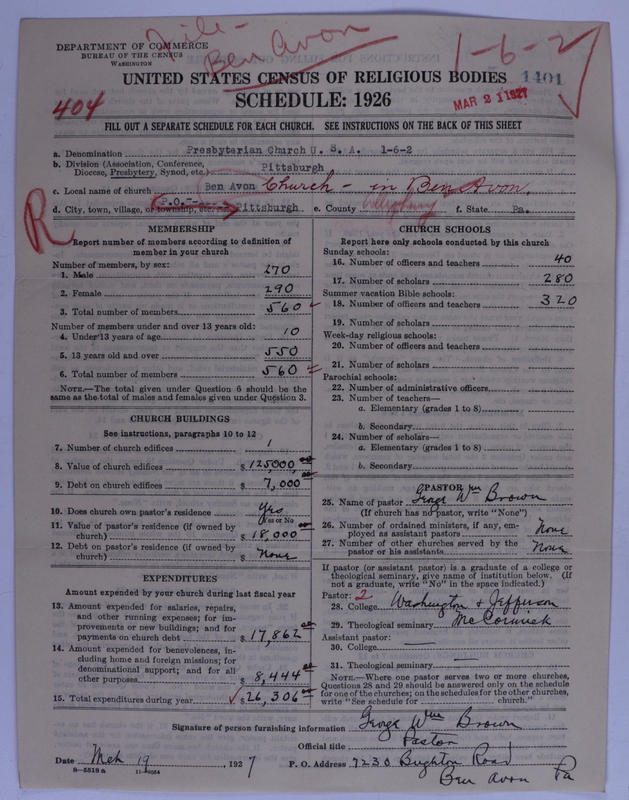 File -
Ben Avon
1-6-2
DEPARTMENT OF COMMERCE
BUREAU OF THE CENSUS
WASHINGTON
UNITED STATES CENSUS OF RELIGIOUS BODIES
1401
404
SCHEDULE: 1926
MAR 21 1927
FILL OUT A SEPARATE SCHEDULE FOR EACH CHURCH. SEE INSTRUCTIONS ON THE BACK OF THIS SHEET
a. Denomination Presbyterian Church U. S. A. 1-6-2
b. Division (Association, Conference, Diocese, Presbytery, Synod, etc.) Pittsburgh
c. Local name of church Ben Avon Church - in Ben Avon.
d. City, town, village, or township, etc. P.O. - Pittsburgh e. County Allegheny f. State Pa.
R
MEMBERSHIP
Report number of members according to definition of member in your church
Number of members, by sex:
1. Male 270
2. Female 290
3. Total number of members 560
Number of members under and over 13 years old:
4. Under 13 years of age 10
5. 13 years old and over 550
6. Total number of members 560
NOTE.—The total given under Question 6 should be the same as the total of males and females given under Question 3.
CHURCH BUILDINGS
See instructions, paragraphs 10 to 12
7. Number of church edifices 1
8. Value of church edifices $ 125000.00
9. Debt on church edifices $ 7,000.00
10. Does church own pastor's residence Yes
Yes or No
11. Value of pastor's residence (if owned by church) $ 18,000.00
12. Debt on pastor's residence (if owned by church) $ None
EXPENDITURES
Amount expended by your church during last fiscal year
13. Amount expended for salaries, repairs, and other running expenses; for improvements or new buildings; and for payments on church debt $ 17,862.00
14. Amount expended for benevolences, including home and foreign missions; for denominational support; and for all other purposes $ 8,444.00
15. Total expenditures during year $ 26,306.00
CHURCH SCHOOLS
Report here only schools conducted by this church
Sunday schools:
16. Number of officers and teachers 40
17. Number of scholars 280
Summer vacation Bible schools:
18. Number of officers and teachers 320
19. Number of scholars
Week-day religious schools:
20. Number of officers and teachers
21. Number of scholars
Parochial schools:
22. Number of administrative officers
23. Number of teachers—
a. Elementary (grades 1 to 8)
b. Secondary
24. Number of scholars—
a. Elementary (grades 1 to 8)
b. Secondary
PASTOR
25. Name of pastor George Wm Brown
(If church has no pastor, write "None")
26. Number of ordained ministers, if any, employed as assistant pastors None
27. Number of other churches served by the pastor or his assistants None
If pastor (or assistant pastor) is a graduate of a college or theological seminary, give name of institution below. (If not a graduate, write "No" in the space indicated.)
Pastor: 2
28. College Washington & Jefferson
29. Theological seminary McCormick
Assistant pastor:
30. College
31. Theological seminary
NOTE.—Where one pastor serves two or more churches, Questions 28 and 29 should be answered only on the schedule for one of the churches; on the schedules for the other churches, write "See schedule for church."
Signature of person furnishing information George Wm Brown
Official title Pastor
Date Mch 19, 1927 P. O. Address 7230 Brighton Road
Ben Avon Pa
8-5518a 11-9054